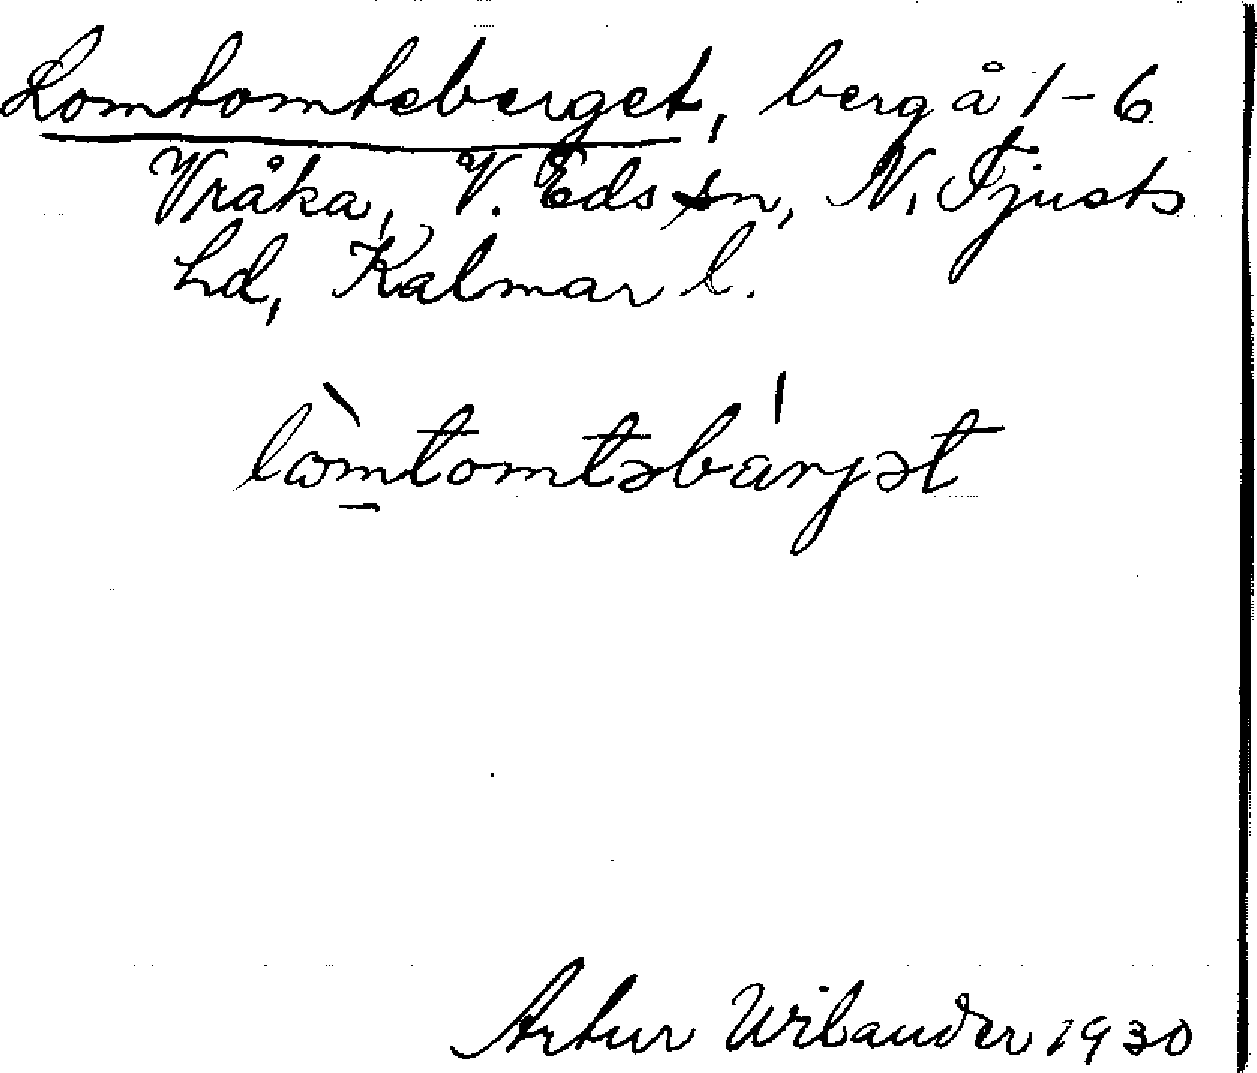 Lomtomteberget, berg å 1-6
Vråka, V. Eds sn, N. Tjusts
hd, Kalmar l.
lòmtomtəbárjət
Artur Wilander 1930